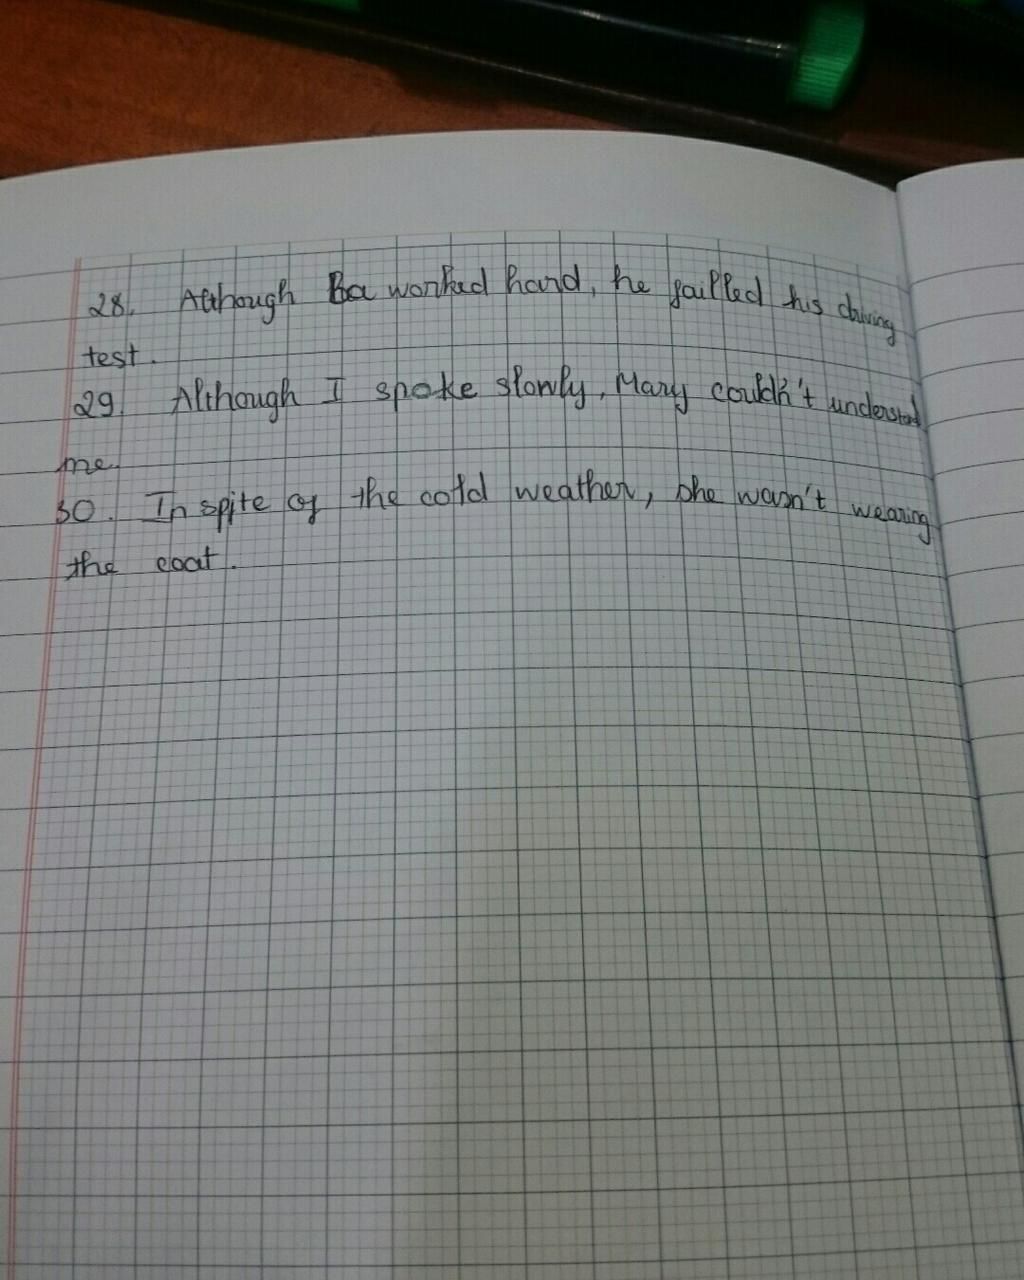 28. Although Ba worked hard, he failled his driving
test.
29. Although I spoke slowly, Mary couldn't understand
me.
30. In spite of the cold weather, she wasn't wearing
the coat.